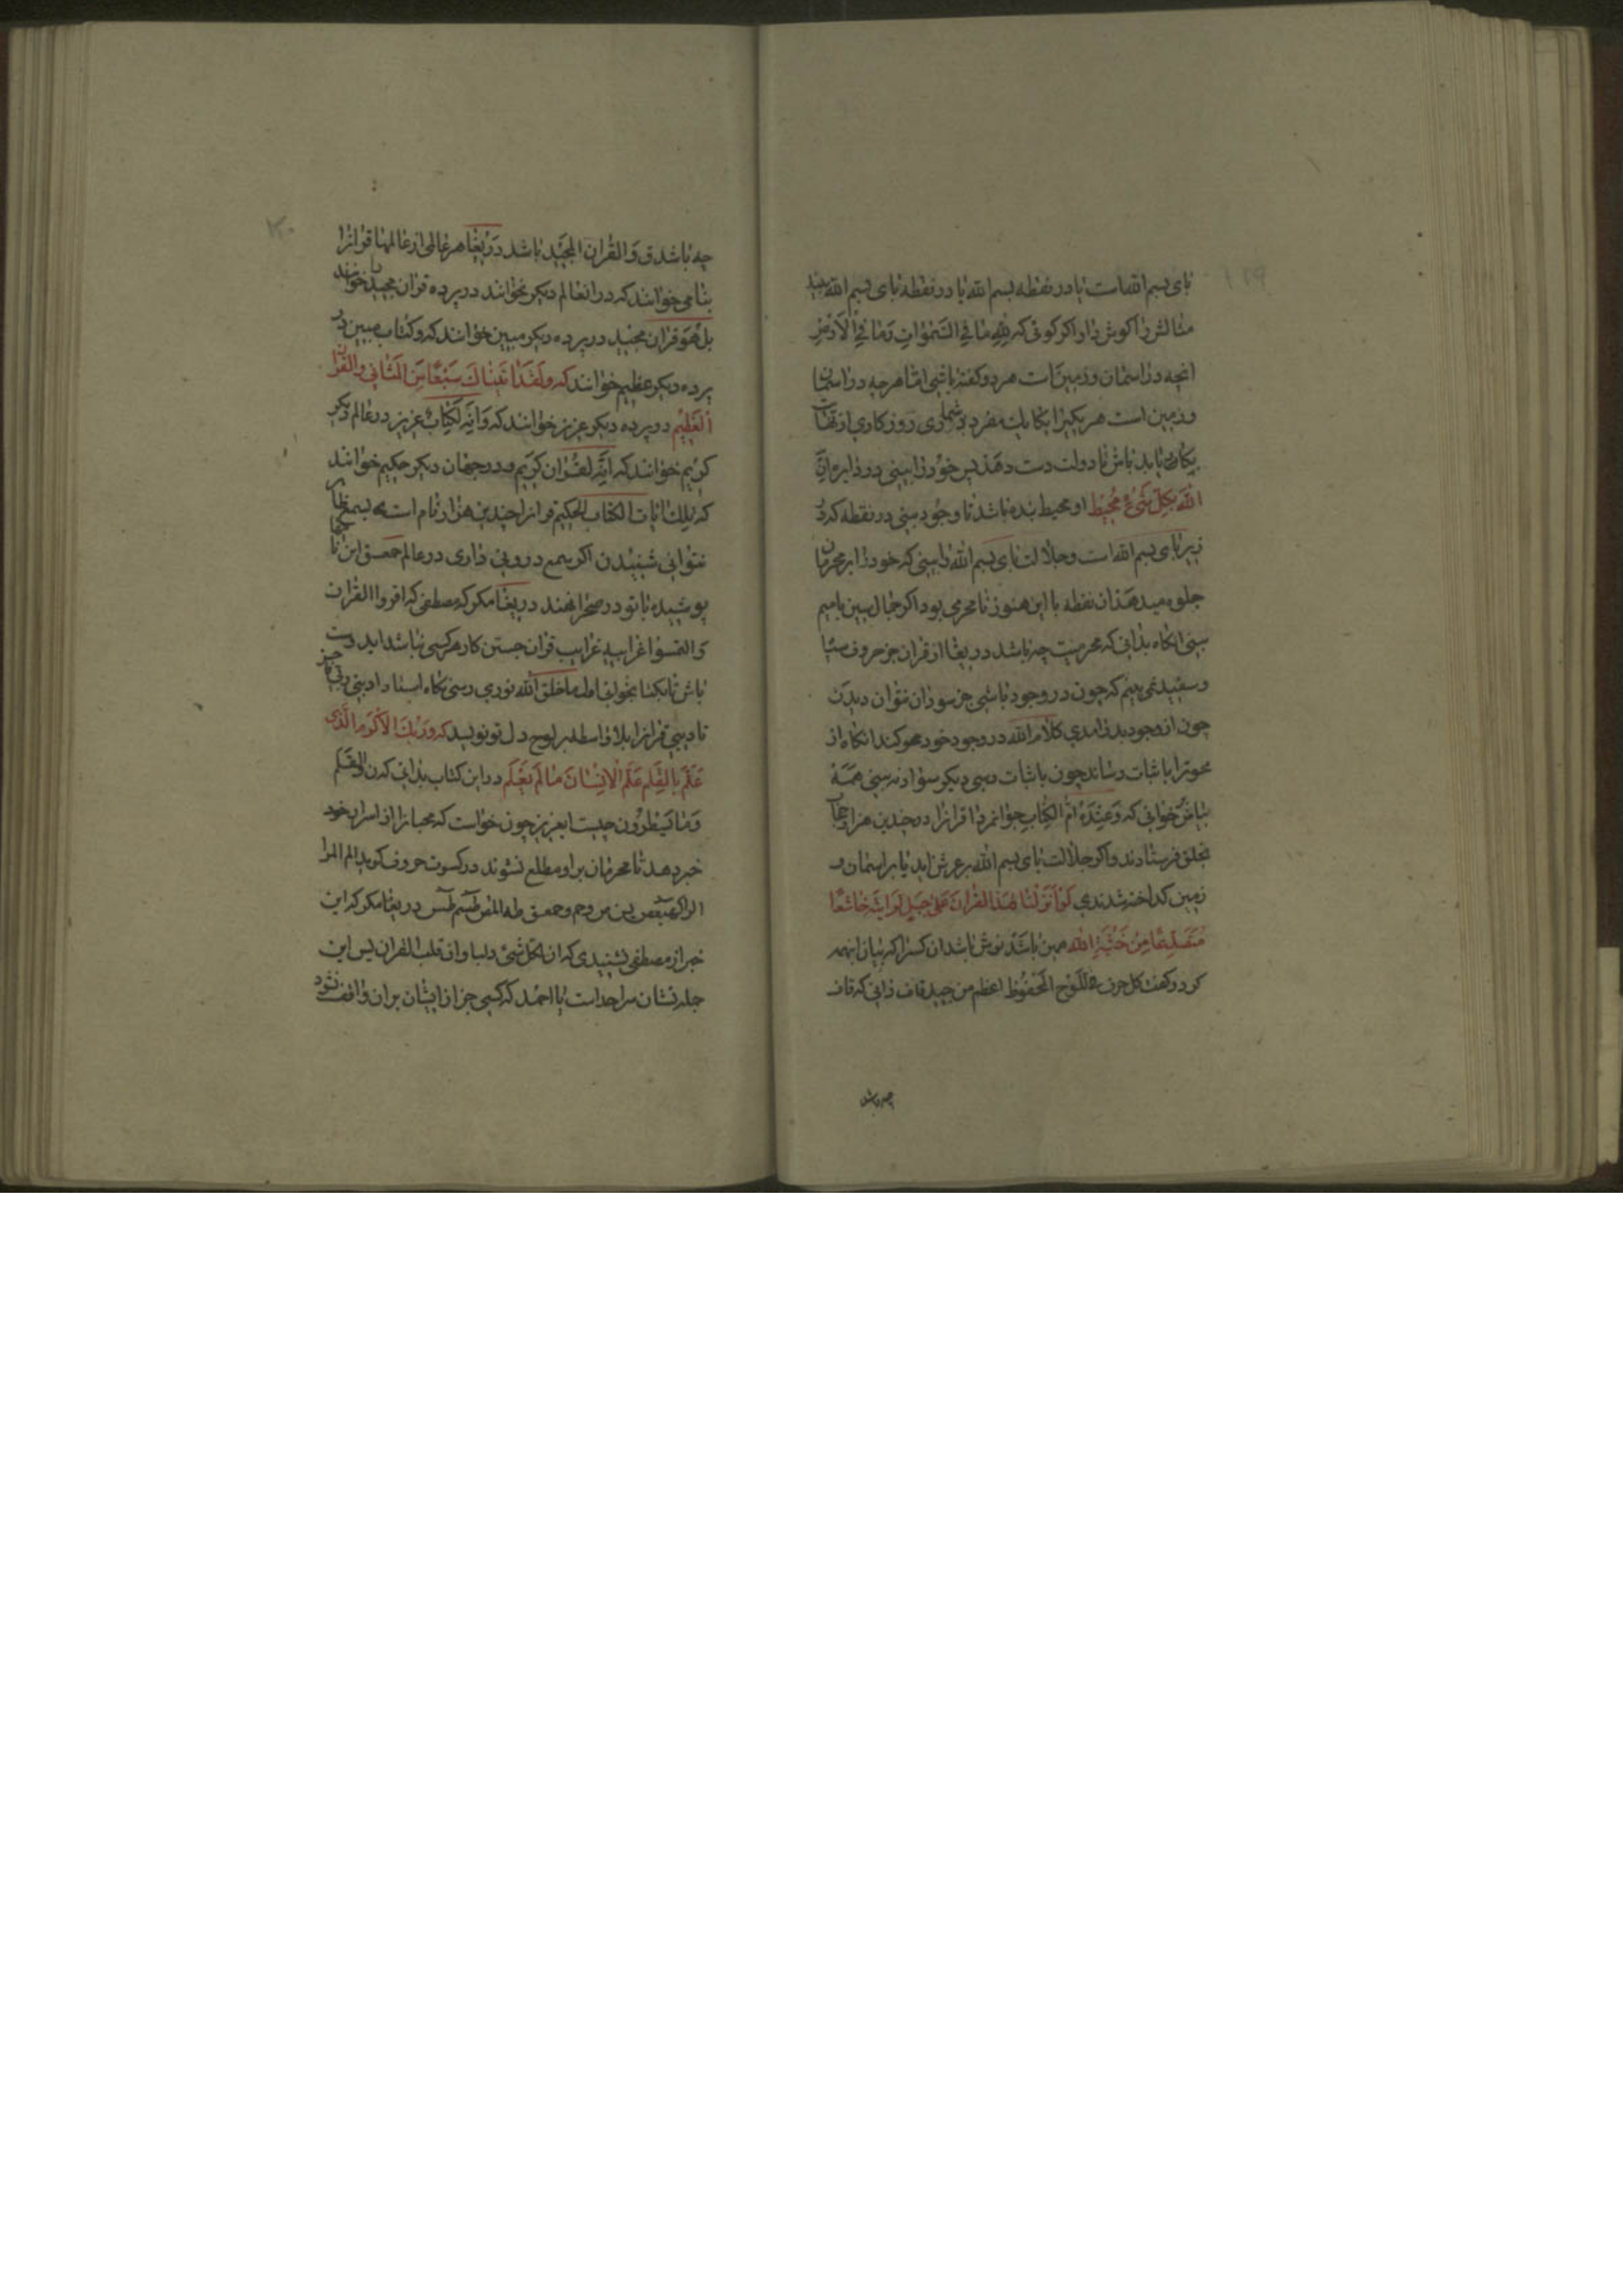 بای بسم الله است یا در نقطه بسم الله یا در نقطه بای بسم الله بیند
مثالش را گوش دار اگر گوئی که لله ما فی السموات وما فی الارض
انچه در اسمان و زمین است هر دو گفته باشی اما هر چه در اسمان
و زمین است هر یکیرا بکایک مفرد برشماری روزگاری از نهایت
بیکاری باید باش تا دولت دست دهد پس خود را بینی در دایره ان
الله بکل شیء محیط او محیط بنده باشد تا وجود بینی در نقطه که در
زیر بای بسم الله است و جلالت بای بسم الله را بینی که خود را بر محرمان
جلوه میدهد ان نقطه با این هنوز نامحرمی بود اگر جمال سین با میم
بینی انگاه بدانی که محرمیت چه باشد دریغا از قران جز حروف سیاه
و سفیدی نمی بینم که چون در وجود باشی جز سواد ان نتوان دیدن
چون از وجود بدر امدی کلام الله در وجود خود محو کند انگاه از
محو ترا باثبات رساند چون باثبات رسی دیگر سواد نه بینی همه
بیاض خوانی که وعنده ام الکتاب جوانمردا قرانرا در چندین هزار حجاب
بخلق فرستادند واگر جلالت بای بسم الله بر عرش اید یا بر اسمان و
زمین گداخته شدندی لو انزلنا هذا القران علی جبل لرایته خاشعا
متصدعا من خشیة الله همین باشد نوش باشد ان کسرا که بیان اینهمه
کرد و گفت کل حرف فی اللوح المحفوظ اعظم من جبل قاف دانی که قاف
چه باشد ق والقران المجید باشد دریغا هر عالمی از عالمها قرانرا
بنامی خوانند که در ان عالم دیگر نخوانند در پرده قران مجید خوانند
بل هو قران مجید در پرده دیگر مبین خوانند که و کتاب مبین در
پرده دیگر عظیم خوانند که ولقد اتیناک سبعا من المثانی والقران
العظیم در پرده دیگر عزیز خوانند که وانه لکتاب عزیز در عالم دیگر
کریم خوانند که انه لقران کریم و در جهان دیگر حکیم خوانند
که تلک ایات الکتاب الحکیم قرانرا چندین هزار نام است که بسمع ظاهر
نتوانی شنیدن اگر سمع درونی داری در عالم حمعسق این نامها
پوشیده با تو در صحرا نهند دریغا مگر که مصطفی که اقروا القران
والتمسوا غرایبه غرایب قران جستن کار هر کسی نباشد ای دوست
باش تا بکتابخوانی اول ما خلق الله نوری رسی نگاه استاد ادبنی ربی
تا ببینی قرانرا بلا واسطه بر لوح دل تو نویسد که وربک الاکرم الذی
علم بالقلم علم الانسان ما لم یعلم در این کتاب بدانی که ن والقلم
وما یسطرون چیست ای عزیز چون خواست که محبانرا از اسرار خود
خبر دهد تا محرمان بر او مطلع نشوند در کسوت حروف گوید الم المرا
الر کهیعص یس ص حم و حمعسق طه المص طسم طس دریغا مگر که این
خبر از مصطفی نشنیدی که ان لکل شیء قلبا وان قلب القران یس این
جمله نشان سر احد است با احمد که کسی جز از ایشان بران واقف نشود